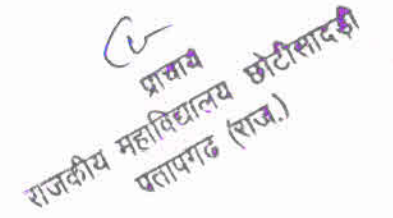 प्राचार्य
राजकीय महाविद्यालय छोटीसादड़ी
प्रतापगढ (राज.)